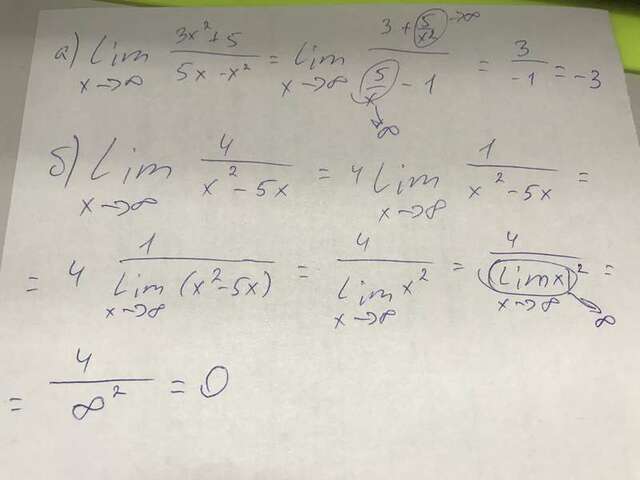 а) Lim x→∞ (3x²+5)/(5x-x²) = Lim x→∞ (3+5/x² →∞)/(5/x →∞ - 1) = 3/-1 = -3
б) Lim x→∞ 4/(x²-5x) = 4 Lim x→∞ 1/(x²-5x) =
= 4 1/(Lim x→∞ (x²-5x)) = 4/(Lim x→∞ x²) = 4/(Lim x→∞ x)² →∞ =
= 4/∞² = 0